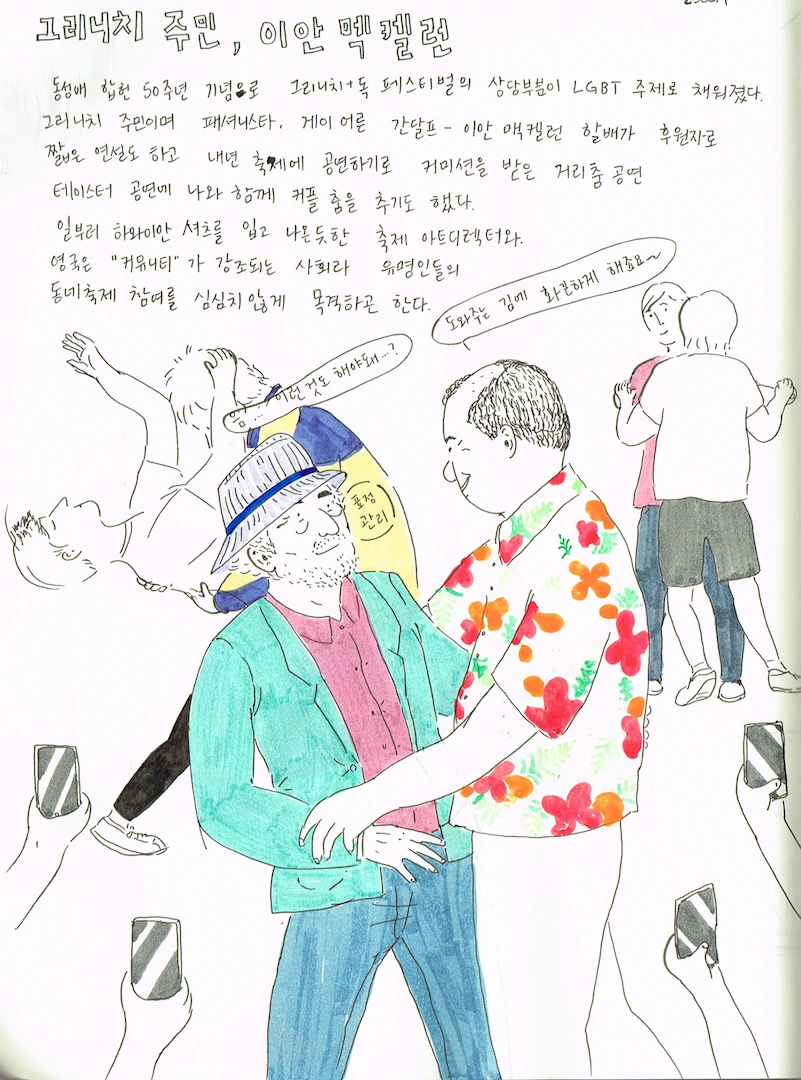 그리니치 주민, 이안 멕켈런
동성애 합헌 50주년 기념으로 그리니치+독 페스티벌의 상당부분이 LGBT 주제로 채워졌다.
그리니치 주민이며 패셔니스타, 게이 어른 간달프 - 이안 맥켈런 할배가 후원자로
짧은 연설도 하고 내년 축제에 공연하기로 커미션을 받은 거리춤 공연
테이스터 공연에 나와 함께 커플 춤을 추기도 했다.
일부러 하와이안 셔츠를 입고 나온듯한 축제 아트디렉터와.
영국은 "커뮤니티"가 강조되는 사회라 유명인들의
동네축제 참여를 심심치 않게 목격하곤 한다.
도와주는 김에 화끈하게 해줘요~
이런것도 해야돼...?
표정
관리